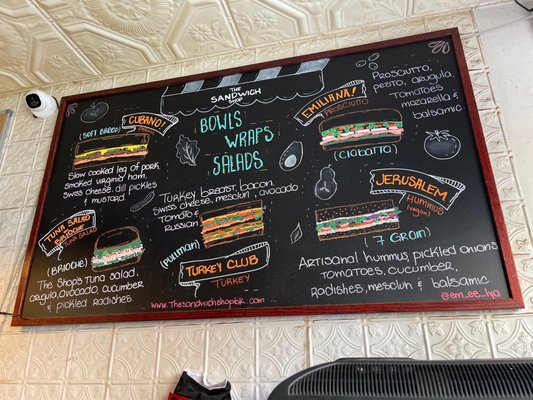 THE
SANDWICH
SHOP
BOWLS
WRAPS
SALADS
CUBANO!
PORK
(SOFT BREAD)
Slow cooked leg of pork
smoked virginia ham,
Swiss cheese, dill pickles
& mustard
EMILIANA!
PROSCIUTTO
(CIABATTA)
PROSCIUTTO,
pesto, arugula,
Tomatoes
mozarella &
balsamic
TUNA SALAD
BRIOCHE
TUNA SALAD
(BRIOCHE)
The Shop's tuna salad,
arugula, avocado, cucumber
& pickled radishes
Turkey breast, bacon,
swiss cheese, mesclun, avocado
tomato &
Russian
(PULLMAN)
TURKEY CLUB
TURKEY
JERUSALEM
HUMMUS
(vegan)
(7 GRAIN)
Artisanal hummus, pickled onions
Tomatoes, cucumber,
Radishes, mesclun & balsamic
www.Thesandwichshopbk.com
@em_ee_lya